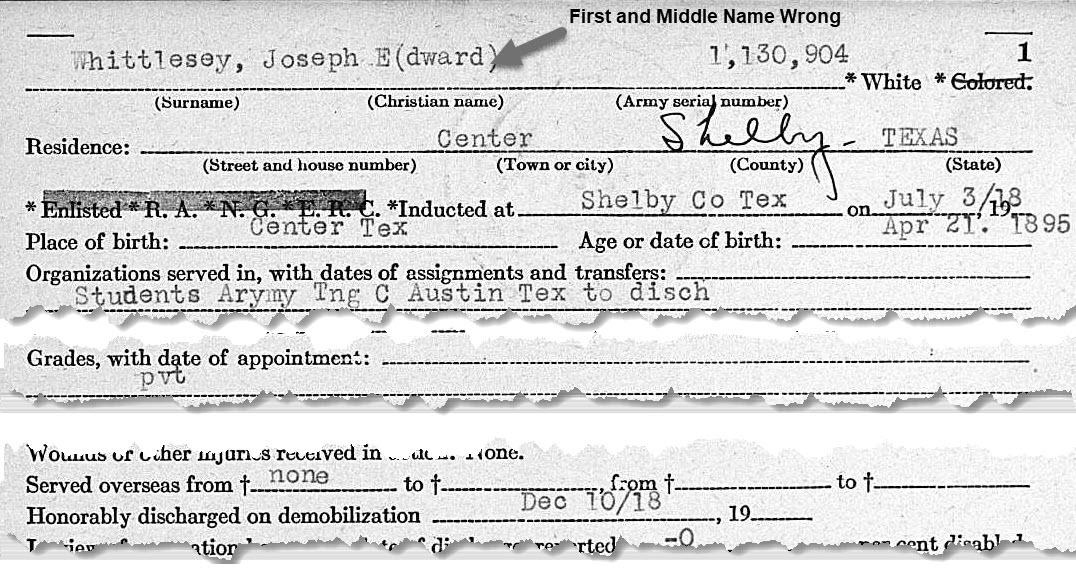 First and Middle Name Wrong
Whittlesey, Joseph E(dward) 1,130,904 1
* White * Colored.
(Surname) (Christian name) (Army serial number)
Residence: Center Shelby TEXAS
(Street and house number) (Town or city) (County) (State)
* Enlisted * R. A. * N. G. * E. R. C. *Inducted at Shelby Co Tex on July 3/18, 19
Place of birth: Center Tex Age or date of birth: Apr 21. 1895
Organizations served in, with dates of assignments and transfers:
Students Arymy Tng C Austin Tex to disch
Grades, with date of appointment:
pvt
Wounds or other injuries received in None.
Served overseas from † none to †, from † to †
Honorably discharged on demobilization Dec 10/18, 19
reported -0 per cent disabled